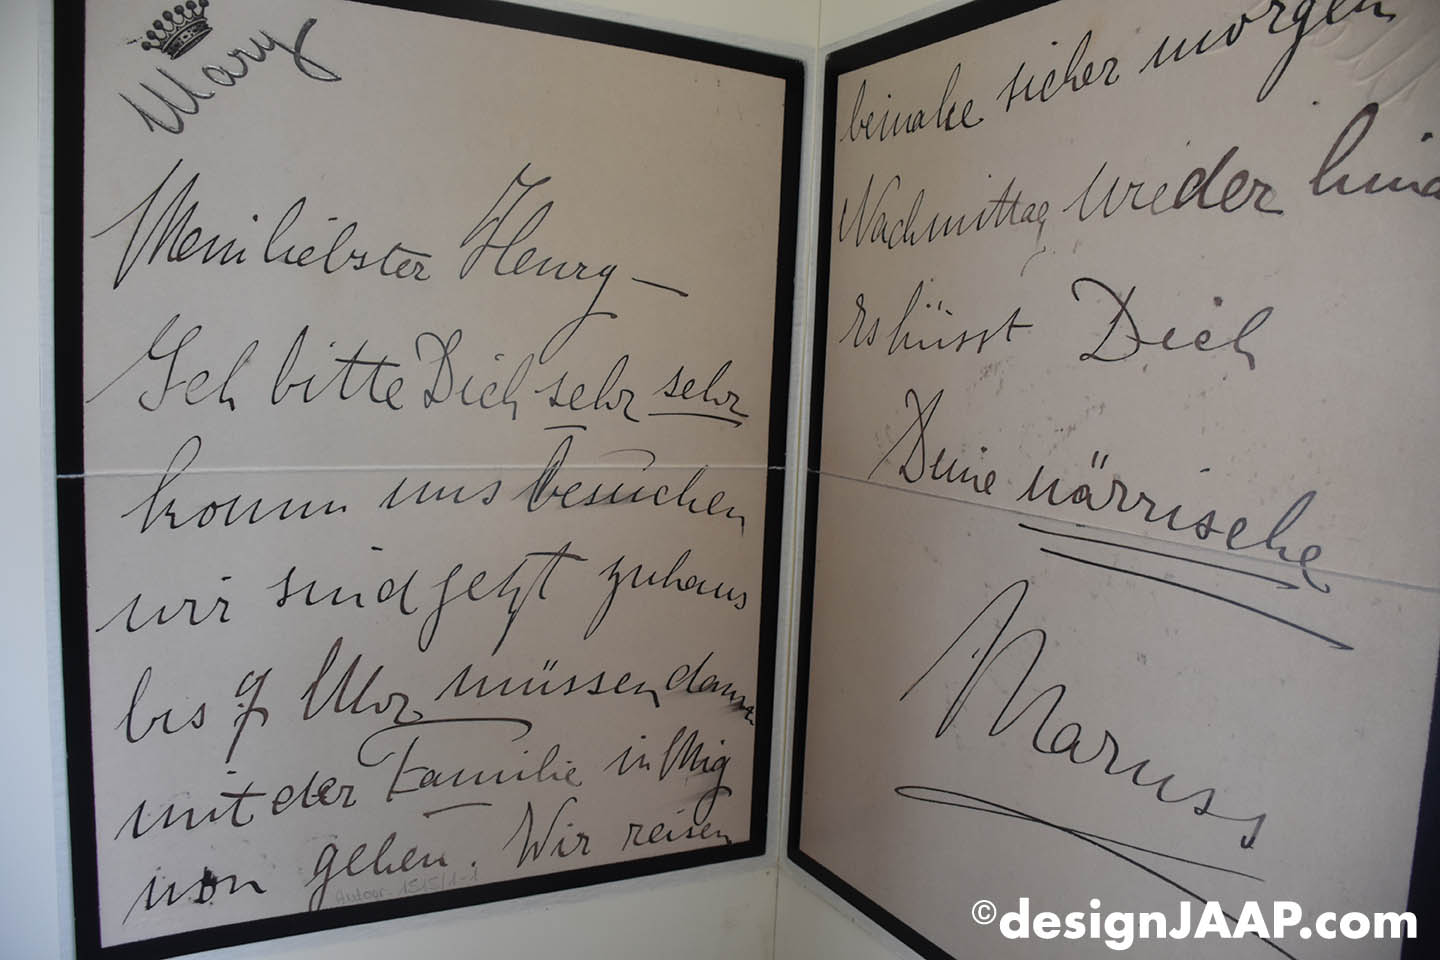 Mary
Mein liebster Henry –
Ich bitte Dich sehr sehr
komm uns besuchen
wir sind jetzt zuhaus
bis 9 Uhr müssen dann
mit der Familie in Mig
non gehen. Wir reisen
Autoor. 1515/1-1
beinahe sicher morgen
Nachmittag wieder
Es küsst Dich
Deine närrische
Maruss
©designJAAP.com